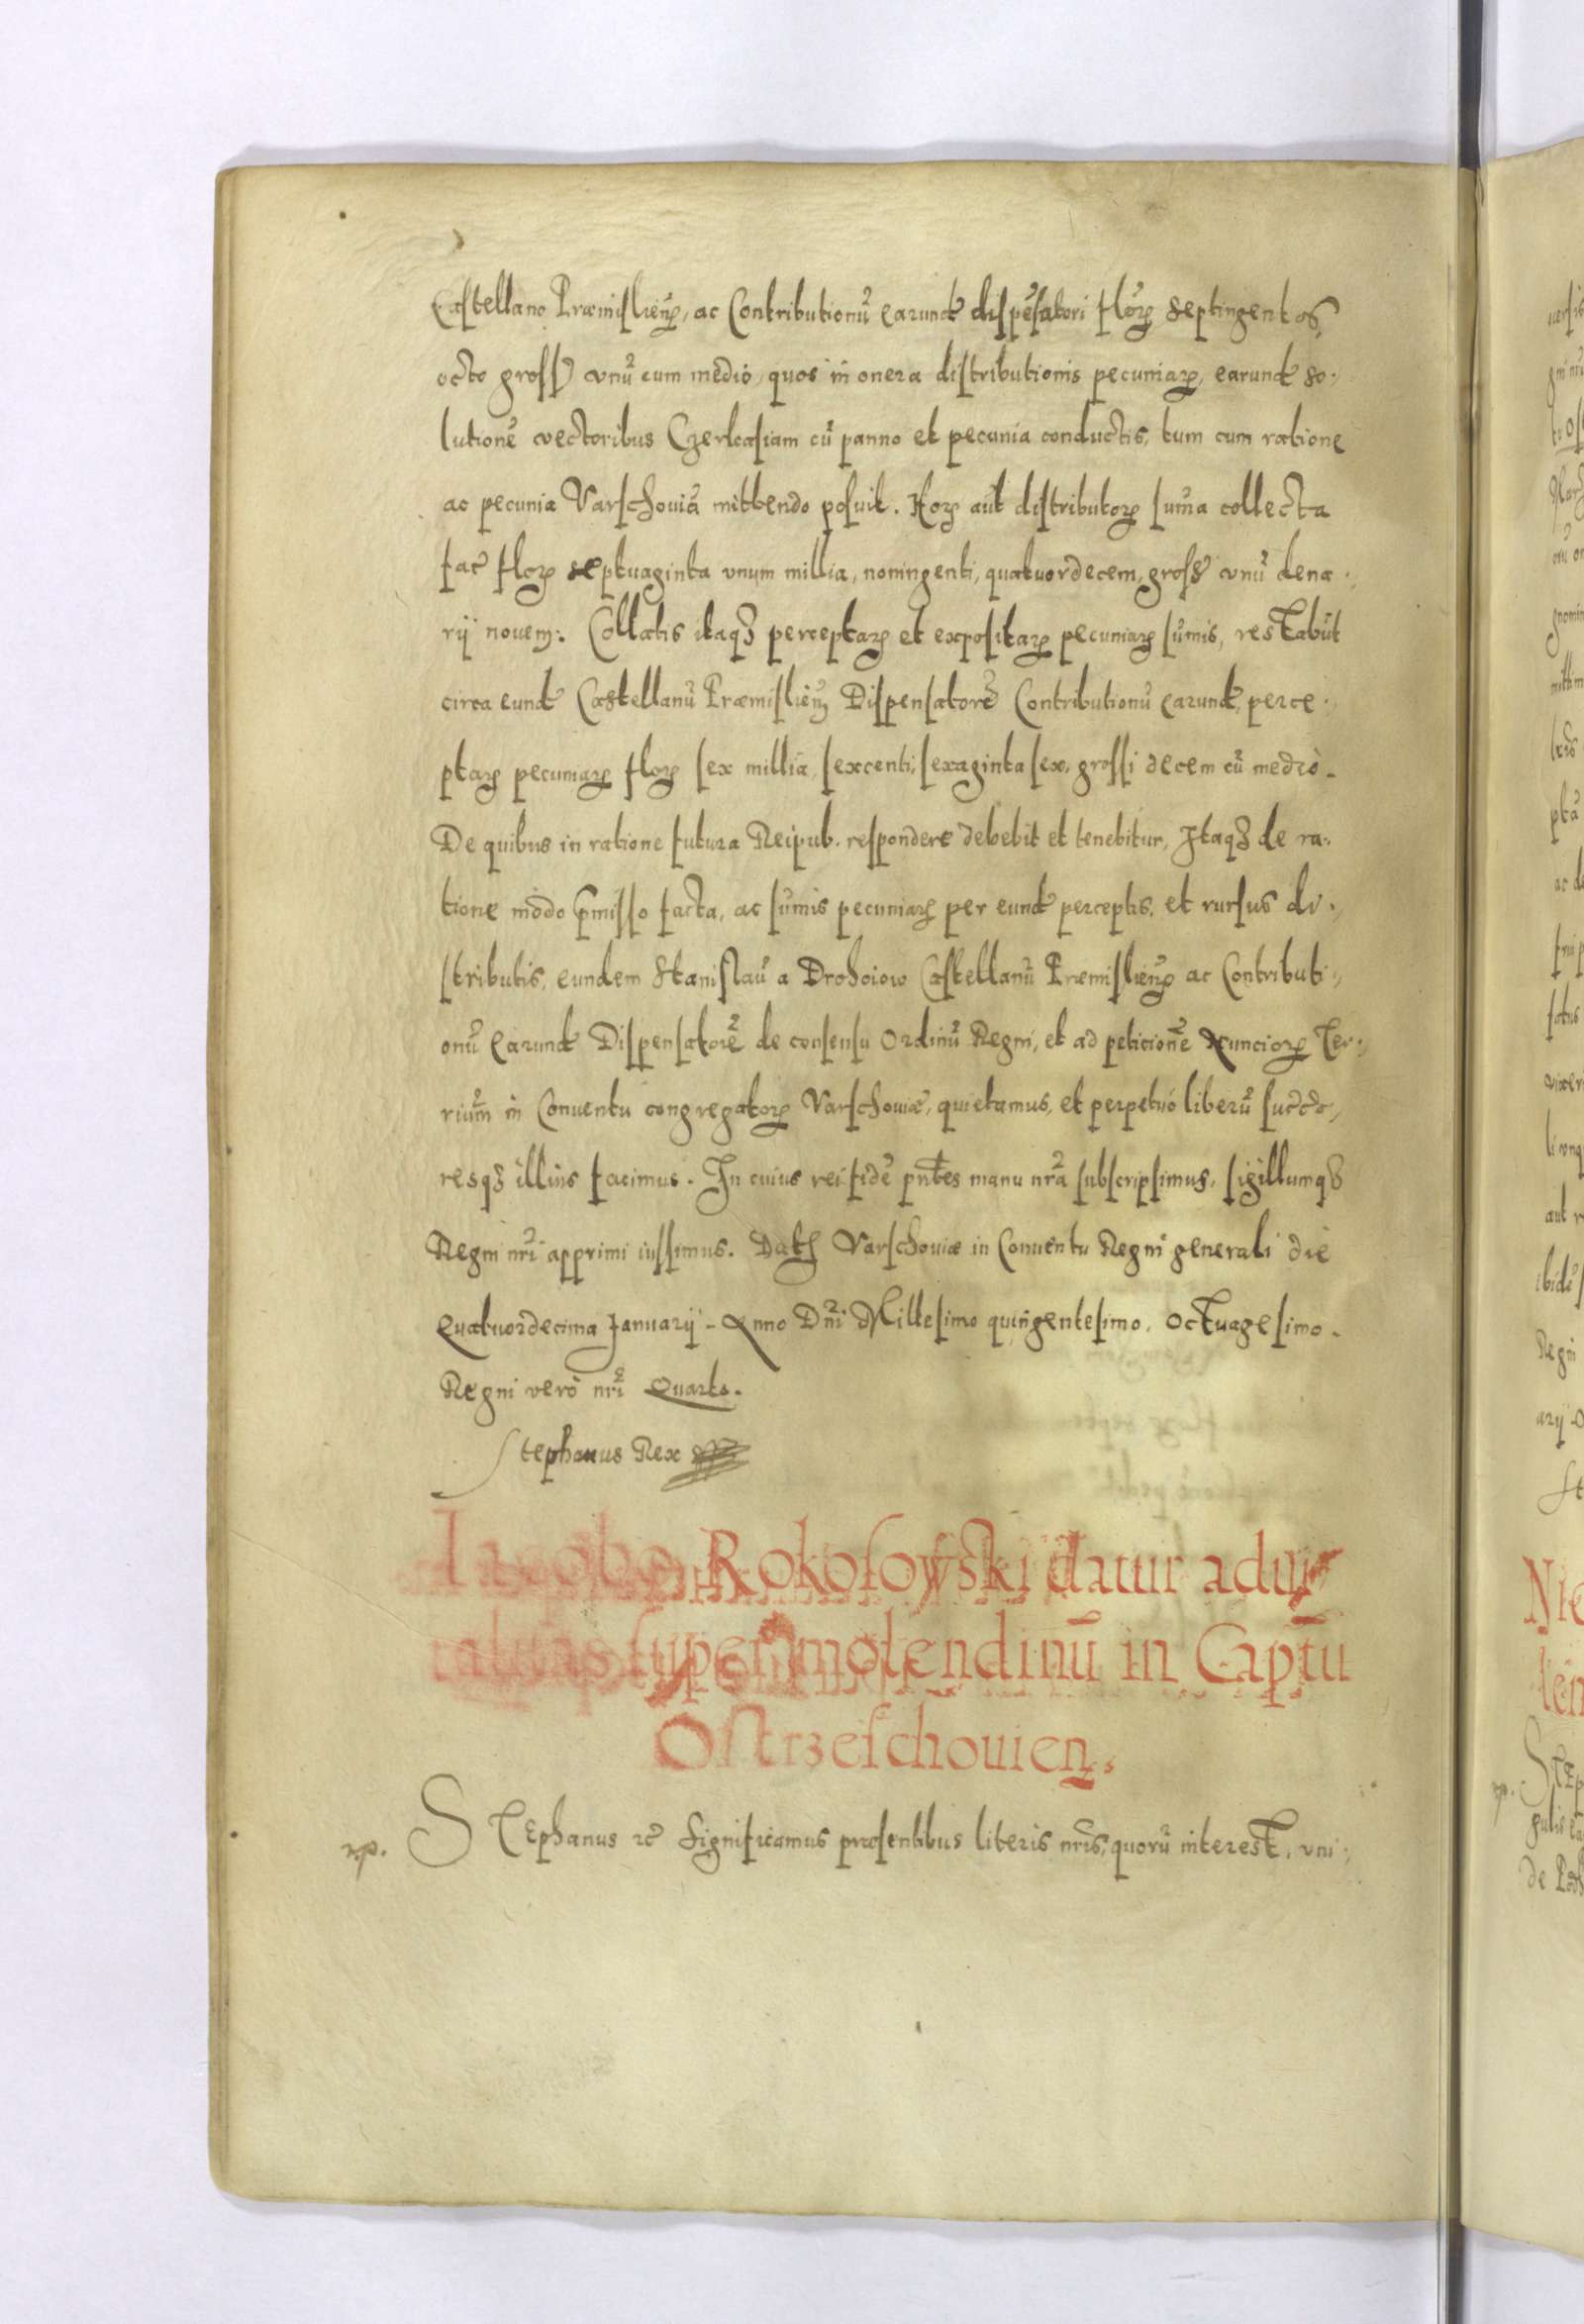 Castellano Præmislien̄, ac Contributionũ earund dispẽsatori floꝝ septingentos
octo gross unũ cum medio, quos in onera distributionis pecuniaꝝ, earund so⸗
lutionẽ vectoribus Czerkasiam cũ panno et pecunia conductis, tum cum ratione
ac pecunia Varschouiã mittendo posuit. Hoꝝ aũt distributoꝝ sum̃a collecta
fac̃ floꝝ septuaginta unum millia, noningenti, quatuordecem, gross unũ dena⸗
rij nouem. Collatis itaqꝫ perceptaꝝ et expositaꝝ pecuniaꝝ sum̃is, restabũt
circa eund Castellanũ Præmislien̄ Dispensatorẽ Contributionũ earund, perce⸗
ptaꝝ pecuniaꝝ floꝝ sex millia, sexcenti, sexaginta sex, grossi decem cũ medio.
De quibus in ratione futura Reipub. respondere debebit et tenebitur, Itaqꝫ de ra⸗
tione modo p̃misso facta, ac sum̃is pecuniaꝝ per eund perceptis, et rursus di⸗
stributis, eundem Stanislaũ a Drohoiow Castellanũ Præmislien̄ ac Contributi⸗
onũ earund Dispensatorẽ de consensu Ordinũ Regni, et ad peticionẽ Nuncioꝝ Ter⸗
rium̃ in Conuentu congregatoꝝ Varschouiæ, quietamus, et perpetuò liberũ succes⸗
resqꝫ illius facimus. In cuius rei fidẽ pñtes manu nr̃a subscripsimus, sigillumqꝫ
Regni nr̃i apprimi iussimus. Dat Varschouiæ in Conuentu Regni generali die
Quatuordecima Januarij Anno Dñi Millesimo quingentesimo, Octuagesimo.
Regni verò nr̃i Quarto.
Stephanus Rex
Iacobo Rokosowski datur adui
talitas super molendinũ in Captũ
Ostrzeschouien̄.
Stephanus ꝛc̃ Significamus præsentibus literis nr̃is, quorũ interest, uni⸗